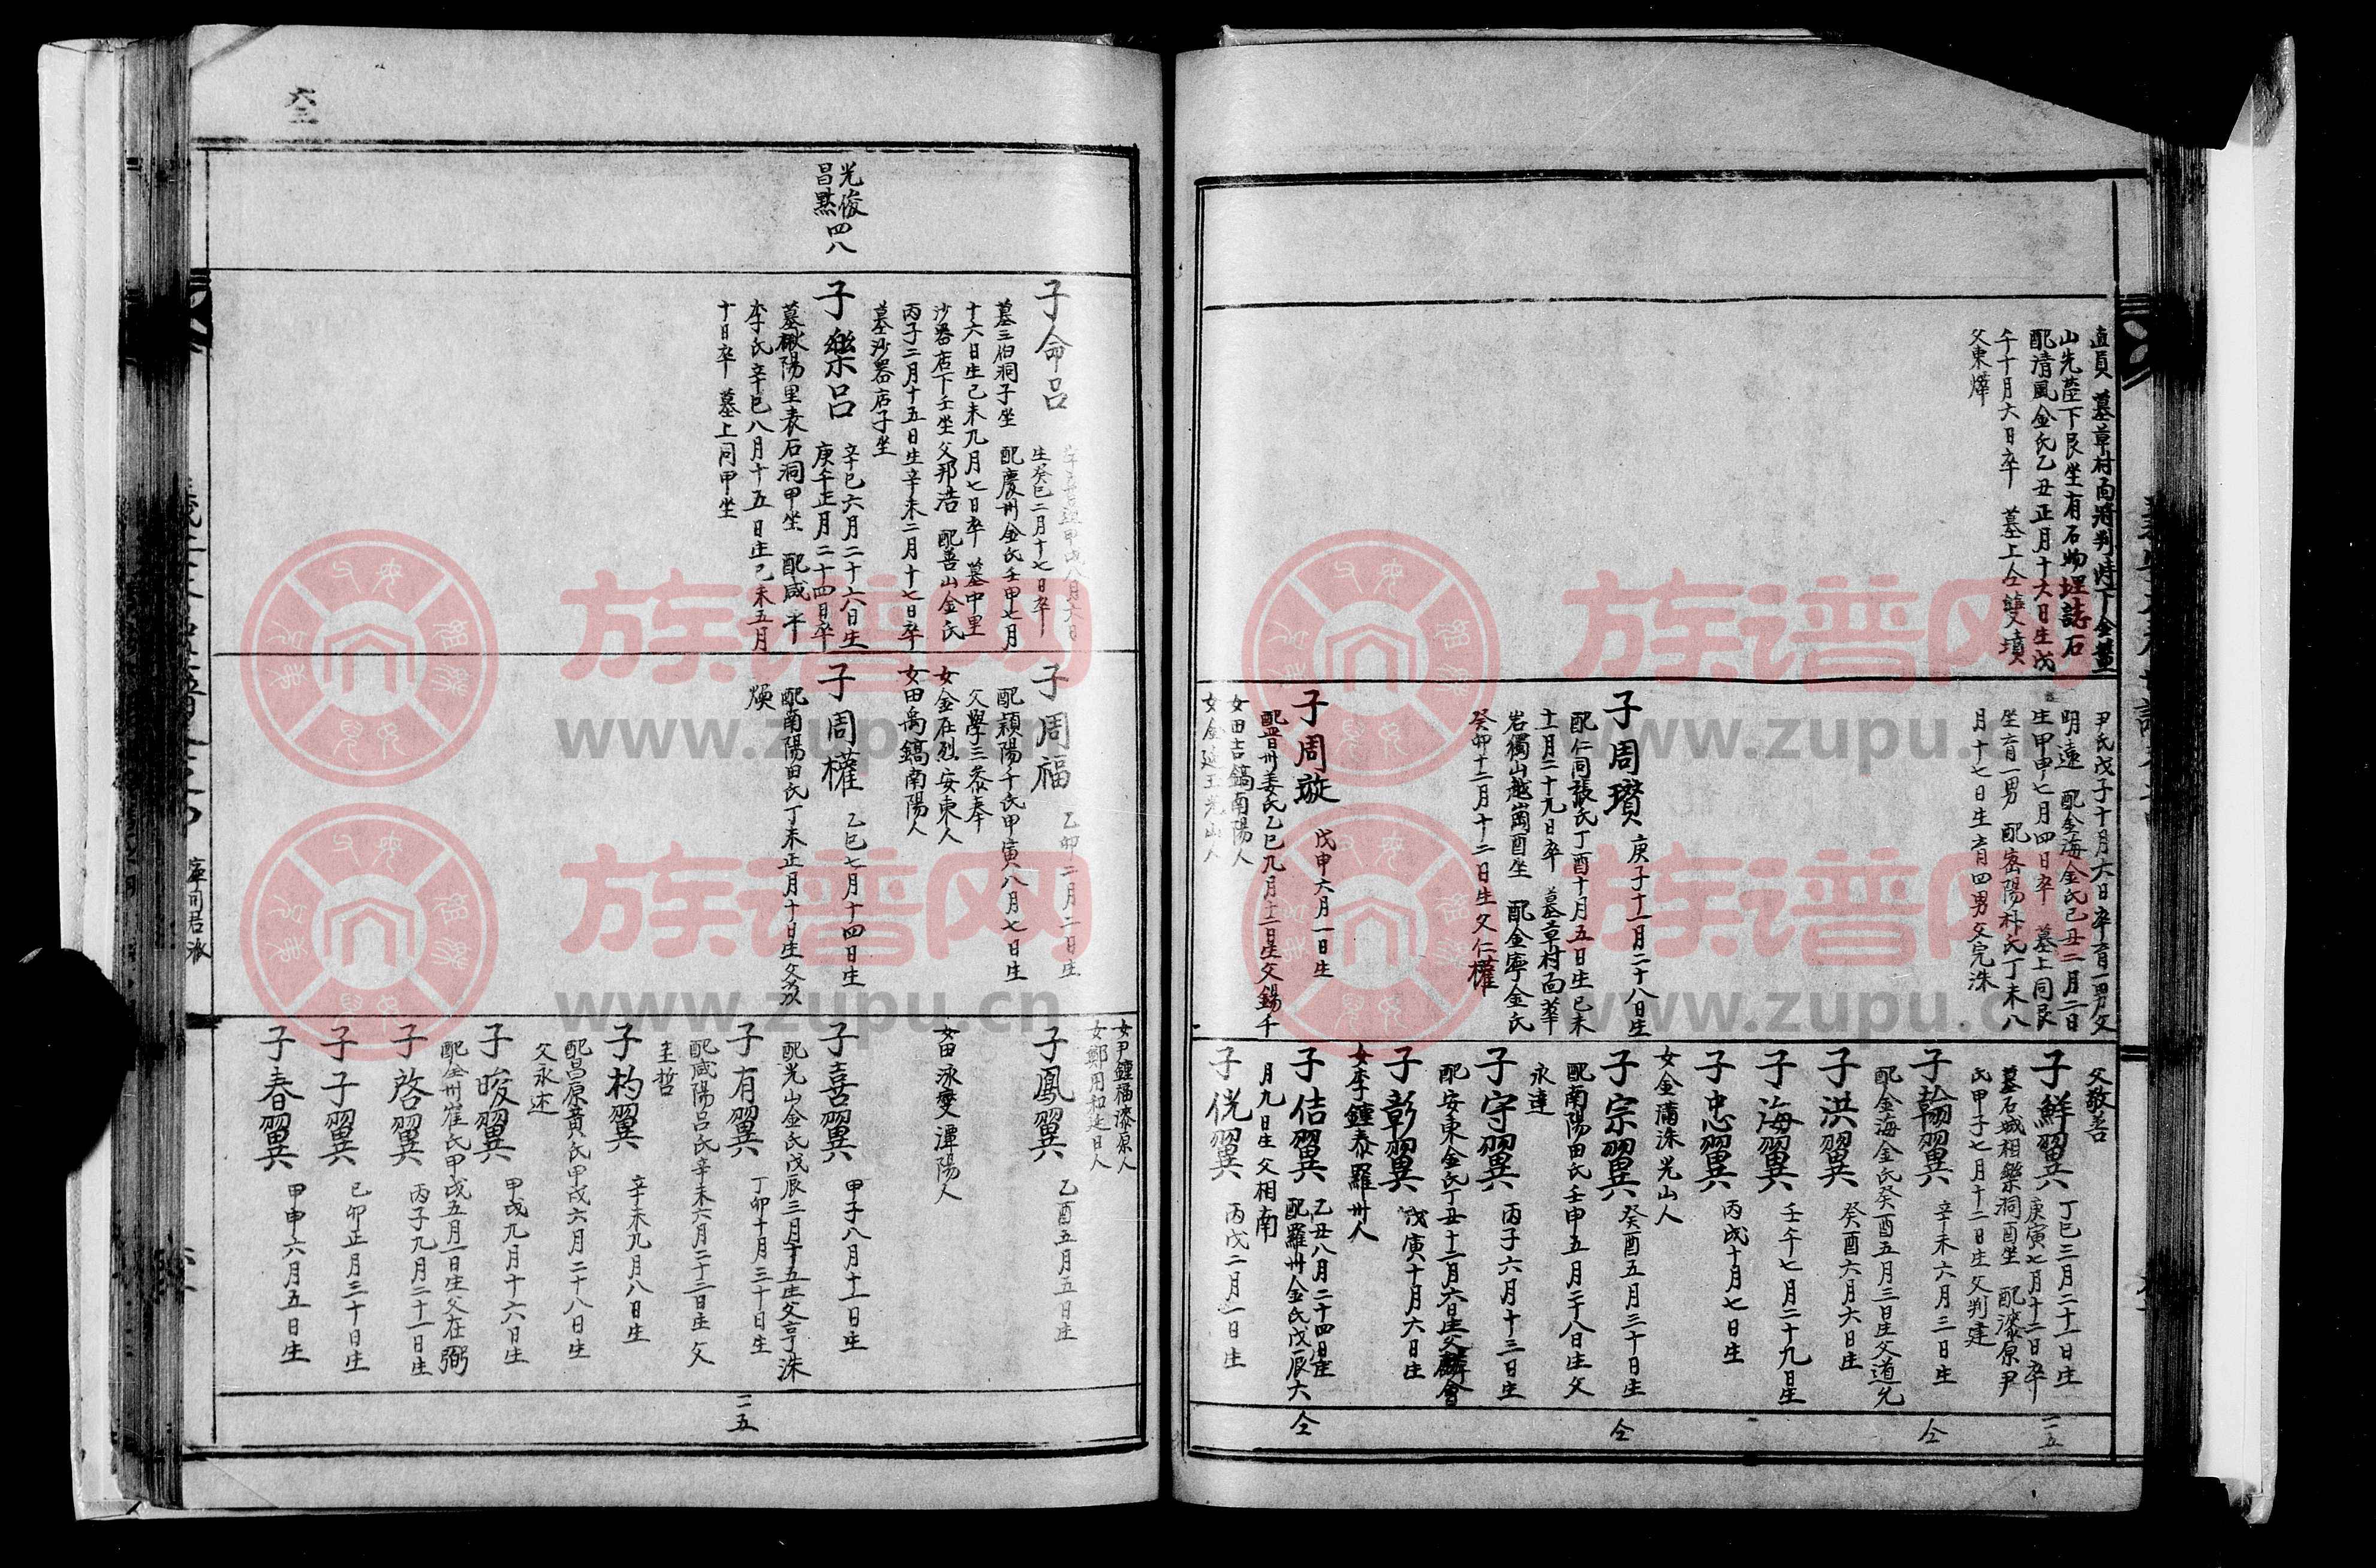 直員 墓草村面將判峙下金董
山先塋下艮坐有石物埋誌石
配清風金氏乙丑正月十六日生戊
午十月六日卒 墓上仝雙墳
父東燁
尹氏戊子十月六日卒育一男父
明遠 配金海金氏己丑二月二日
生甲申七月四日卒 墓上同艮
坐育一男 配密陽朴氏丁未八
月十七日生育四男父完洙
子周瓚 庚子十一月二十八日生
配仁同張氏丁酉十月五日生己未
十一月二十九日卒 墓草村面華
岩獨山越崗酉坐 配金寧金氏
癸卯十二月十二日生父仁權
子周璇 戊申六月一日生
配晋州姜氏乙巳九月十一日生父錫千
女田吉鎬南陽人
父敬善
子鮮翼 丁巳三月二十一日生
庚寅七月十二日卒
墓石城相樂洞酉坐 配漆原尹
氏甲子七月十二日生父判建
子翰翼 辛未六月三日生
配金海金氏癸酉五月三日生父道允
子洪翼 癸酉六月六日生
子海翼 壬午七月二十九日生
子忠翼 丙戌十月七日生
女金蒲洙光山人
子宗翼 癸酉五月三十日生
配南陽田氏壬申五月二十八日生父
永達
子守翼 丙子六月十三日生
配安東金氏丁丑十二月六日生父麟會
子彰翼 戊寅十月六日生
女李鍾泰羅州人
子佶翼 乙丑八月二十四日生
配羅州金氏戊辰六
月九日生父相南
子侊翼 丙戌二月一日生
二五
仝
仝
仝
六三
光俊 四八
昌黙
子命呂
生癸巳二月十七日卒
墓三伯洞子坐 配慶州金氏壬申七月
十六日生己未九月七日卒 墓中里
沙器店下壬坐父邦浩 配善山金氏
丙子二月十五日生辛未二月十七日卒
墓沙器店子坐
子樂呂 辛巳六月二十六日生
庚午正月二十四日卒
墓楸陽里表石洞甲坐 配咸平
李氏辛巳八月十五日生己未五月
十日卒 墓上同甲坐
子周福 乙卯二月二日生
配潁陽千氏甲寅八月七日生
父學三叅奉
女金在烈安東人
女田禹鎬南陽人
子周權 乙巳七月十四日生
配南陽田氏丁未正月十日生父
煐
女尹鍾福漆原人
女鄭用和延日人
子鳳翼 乙酉五月五日生
女田泳燮潭陽人
子喜翼 甲子八月十一日生
配光山金氏戊辰三月十五生父亨洙
子有翼 丁卯十月三十日生
配咸陽呂氏辛未六月二十二日生父
圭哲
子杓翼 辛未九月八日生
配昌原黃氏甲戌六月二十八日生
父永述
子晙翼 甲戌九月十六日生
配全州崔氏甲戌五月一日生父在弼
子啓翼 丙子九月二十一日生
子子翼 己卯正月三十日生
子春翼 甲申六月五日生
二五
族谱网
www.zupu.cn
族谱网
www.zupu.cn
族谱网
www.zupu.cn
族谱网
www.zupu.cn